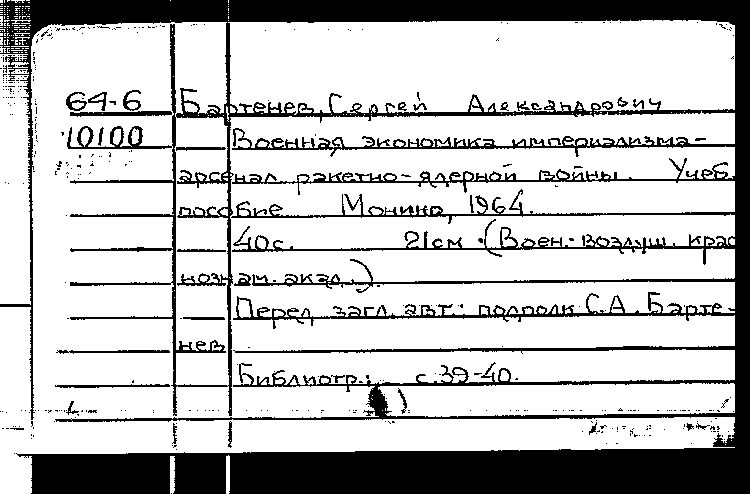 64-6 Бартенев, Сергей Александрович
10100 Военная экономика империализма-
арсенал ракетно-ядерной войны. Учеб.
пособие Монино, 1964.
40с. 21см. (Воен.-воздуш. крас
нознам. акад.)
Перед загл. авт.: подполк С.А. Барте-
нев
Библиогр.: с.39-40.